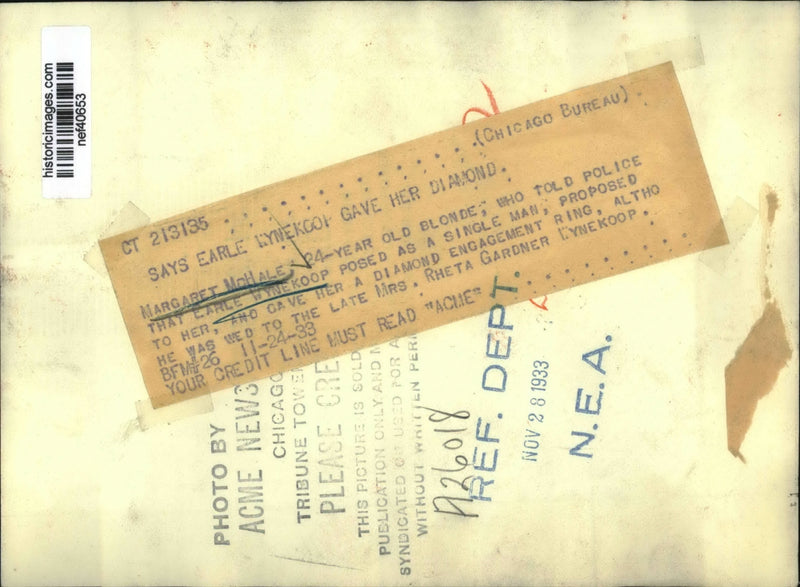 historicimages.com
nef40653
CT 213135 . . . . . . . . . . . . . . (CHICAGO BUREAU)
SAYS EARLE WYNEKOOP GAVE HER DIAMOND.
MARGARET MCHALE, 24-YEAR OLD BLONDE, WHO TOLD POLICE
THAT EARLE WYNEKOOP POSED AS A SINGLE MAN, PROPOSED
TO HER, AND GAVE HER A DIAMOND ENGAGEMENT RING, ALTHO
HE WAS WED TO THE LATE MRS. RHETA GARDNER WYNEKOOP.
BFM#26 11-24-33
YOUR CREDIT LINE MUST READ "ACME"
PHOTO BY
ACME NEWS
CHICAGO
TRIBUNE TOWER
PLEASE CRE
THIS PICTURE IS SOLD
PUBLICATION ONLY, AND M
SYNDICATED OR USED FOR A
WITHOUT WRITTEN PERM
A26018
REF. DEPT.
NOV 28 1933
N.E.A.